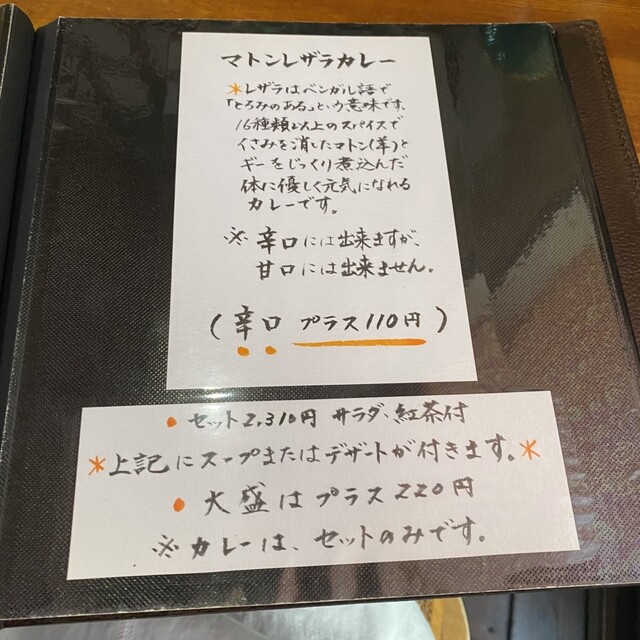 マトンレザラカレー
*レザラはベンガル語で
「とろみのある」という意味です。
16種類以上のスパイスで
くさみを消したマトン(羊)と
ギーをじっくり煮込んだ
体に優しく元気になれる
カレーです。
※ 辛口には出来ますが、
甘口には出来ません。
(辛口 プラス110円)
• セット2,310円 サラダ、紅茶付
*上記にスープまたはデザートが付きます。*
• 大盛はプラス220円
※カレーは、セットのみです。